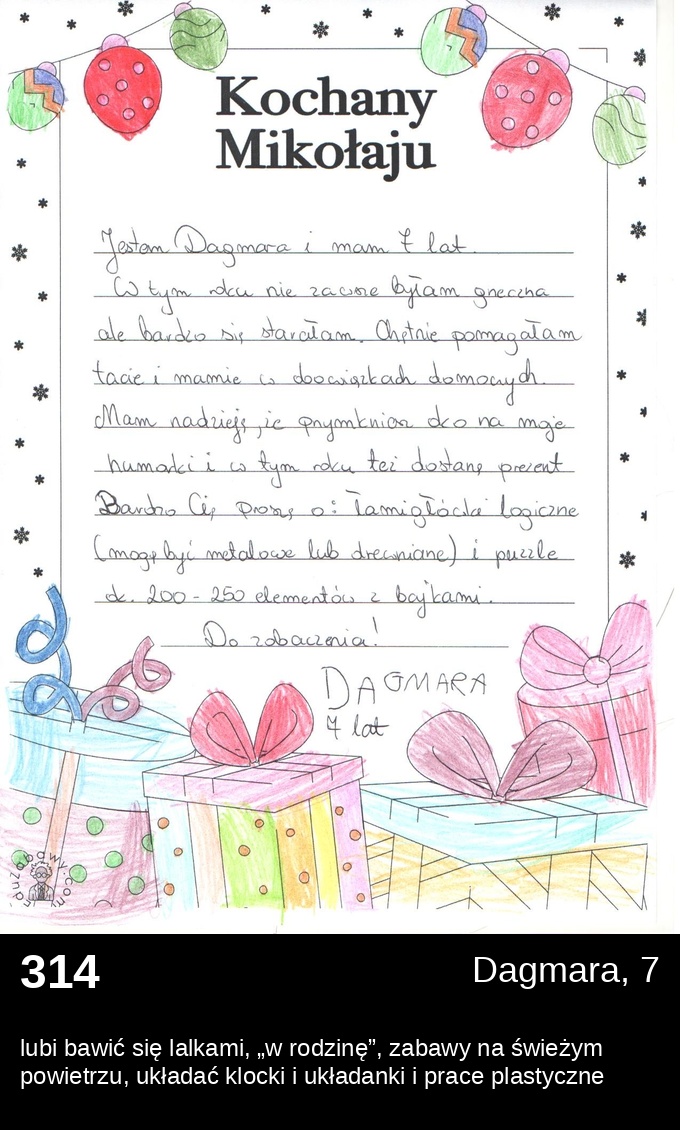 Kochany
Mikołaju
Jestem Dagmara i mam 7 lat.
W tym roku nie zawsze byłam grzeczna
ale bardzo się starałam. Chętnie pomagałam
tacie i mamie w obowiązkach domowych.
Mam nadzieję, że przymkniesz oko na moje
humorki i w tym roku też dostanę prezent
Bardzo Cię proszę o: Łamigłówki logiczne
(mogą być metalowe lub drewniane) i puzzle
ok. 200 - 250 elementów z bajkami.
Do zobaczenia!
DAGMARA
7 lat
314
Dagmara, 7
lubi bawić się lalkami, „w rodzinę”, zabawy na świeżym
powietrzu, układać klocki i układanki i prace plastyczne